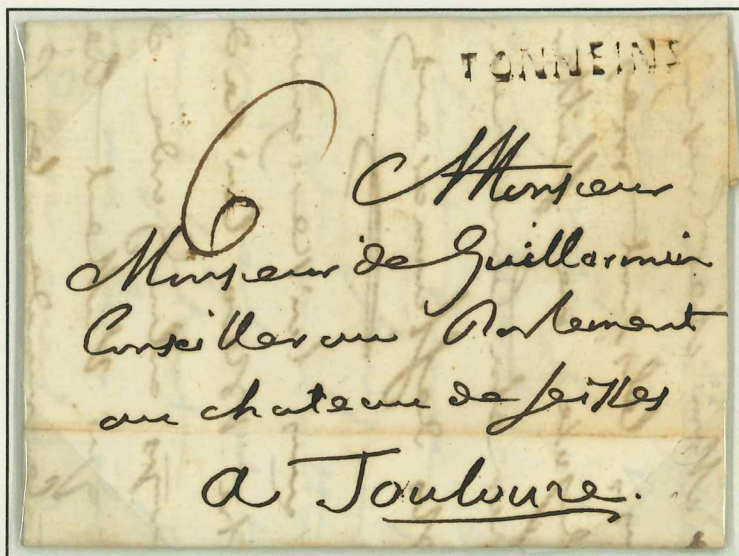 TONNEINS
6
Monsieur
Monsieur de Guillermin
Conseiller au Parlement
au chateau de Seisses
a Toulouse.